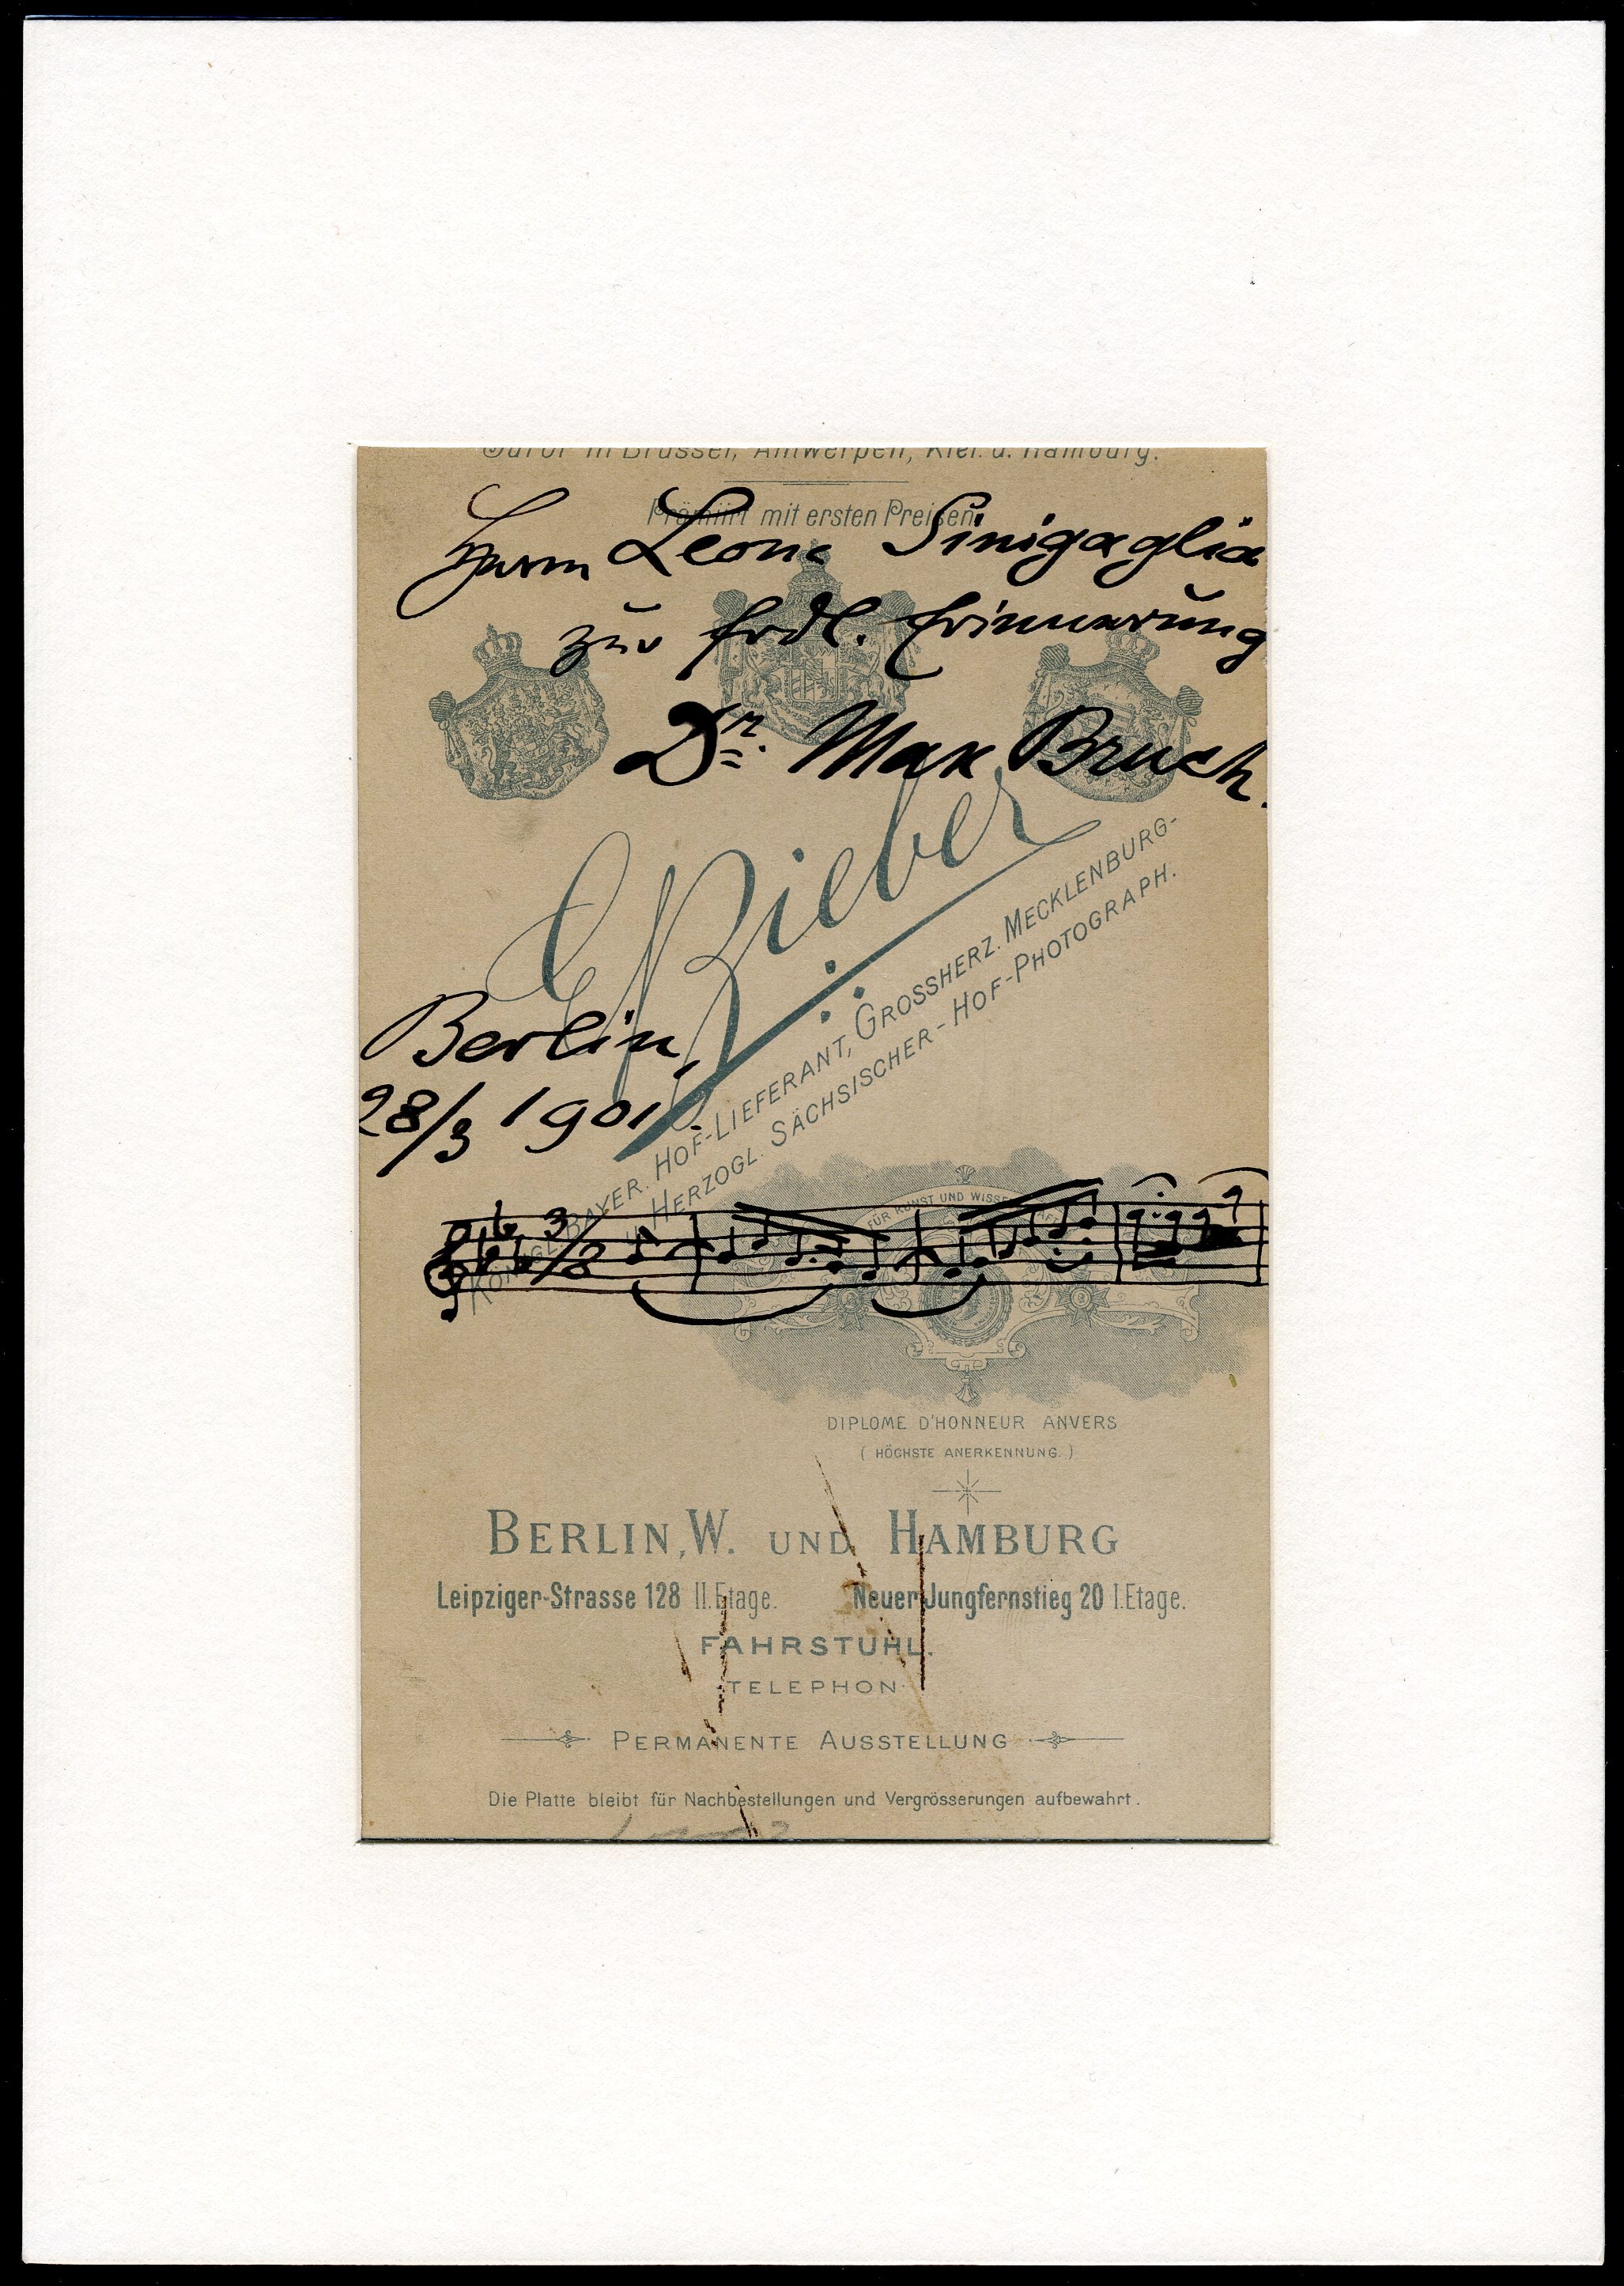 Juror in Brüssel, Antwerpen, Kiel. u. Hamburg.
Prämiirt mit ersten Preisen
Herrn Leone Sinigaglia
zur frdl. Erinnerung
Dr. Max Bruch.
E. Bieber
Königl. Bayer. Hof-Lieferant, Grossherz. Mecklenburg-
Herzogl. Sächsischer-Hof-Photograph.
Berlin,
28/3 1901.
3/8
FÜR KUNST UND
DIPLOME D'HONNEUR ANVERS
( HÖCHSTE ANERKENNUNG. )
BERLIN, W. UND HAMBURG
Leipziger-Strasse 128 II. Etage. Neuer Jungfernstieg 20 I. Etage.
FAHRSTUHL.
TELEPHON
PERMANENTE AUSSTELLUNG
Die Platte bleibt für Nachbestellungen und Vergrösserungen aufbewahrt.